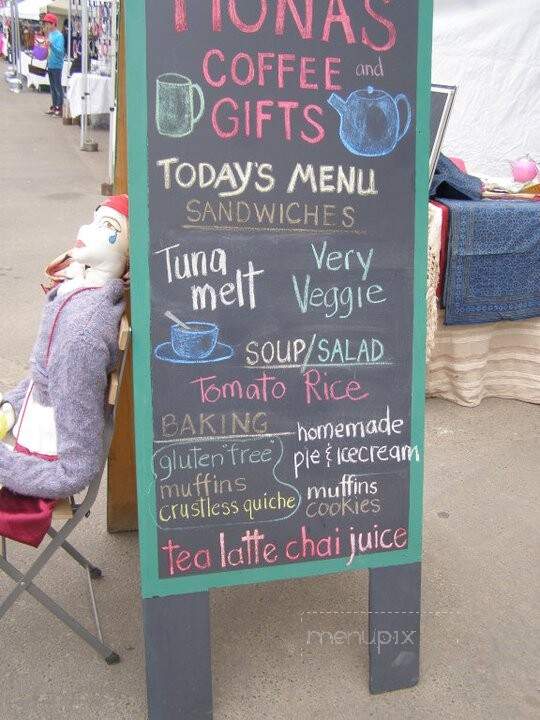 MONAS
COFFEE and
GIFTS
TODAY'S MENU
SANDWICHES
Tuna melt
Very Veggie
SOUP/SALAD
Tomato Rice
BAKING
gluten "free"
muffins
crustless quiche
homemade
pie & icecream
muffins
cookies
tea latte chai juice
menupix